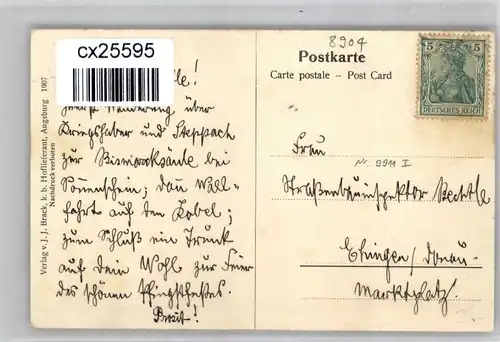 cx25595
8904
Postkarte
Carte postale – Post Card
5 5
DEUTSCHES REICH
Verlag v. J. J. Brack, k. b. Hoflieferant, Augsburg 1907
Nachdruck verboten
Wanderung über
Kriegshaber und Steppach
zur Bismarcksäule bei
Sonnenschein; dann Wall-
fahrt auf den Kobel;
zum Schluß ein Trunk
auf Dein Wohl zur Feier
des schönen Pfingstfestes.
Prosit!
Frau
Nr. 9911 I
Straßenbauinspektor
Ehingen/Donau
Marktplatz.